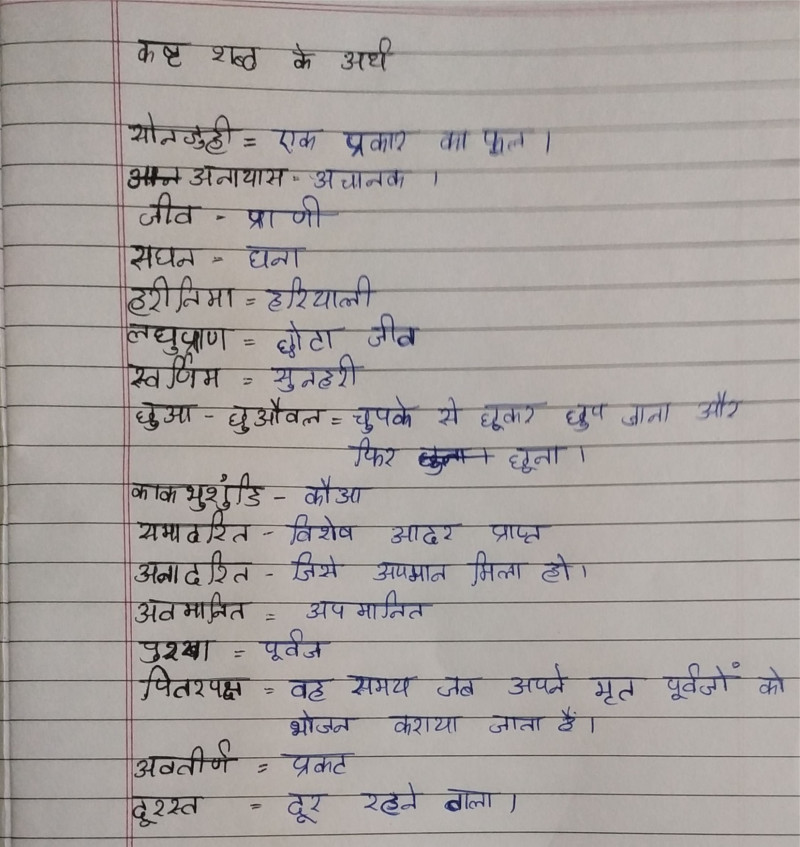 कष्ट शब्द के अर्थ
सोनजुही = एक प्रकार का फूल ।
अनायास - अचानक ।
जीव - प्राणी
सघन = घना
हरीतिमा = हरियाली
लघुप्राण = छोटा जीव
स्वर्णिम = सुनहरी
छुआ - छुऔवल = चुपके से छूकर छुप जाना और
फिर छूना ।
काकभुशुंडि - कौआ
समादरित - विशेष आदर प्राप्त
अनादरित - जिसे अपमान मिला हो ।
अवमानित = अपमानित
पुरखा = पूर्वज
पितरपक्ष = वह समय जब अपने मृत पूर्वजों को
भोजन कराया जाता हैं ।
अवतीर्ण = प्रकट
दूरस्त = दूर रहने वाला ।